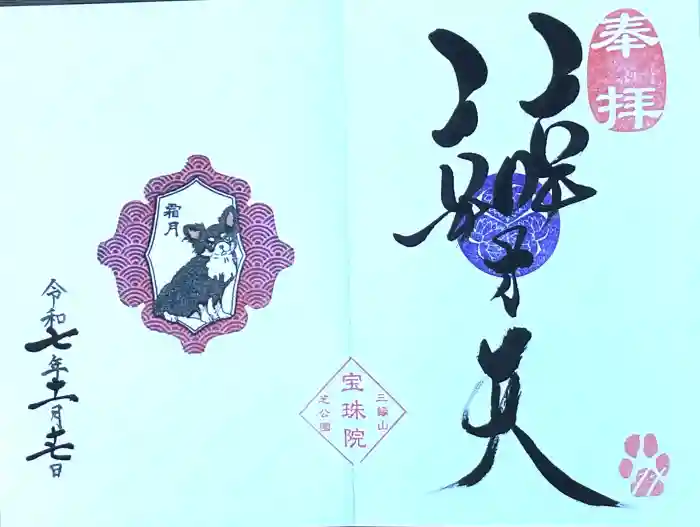 奉拝
辯才天
三縁山
宝珠院
芝公園
11
霜月
令和七年十一月十七日